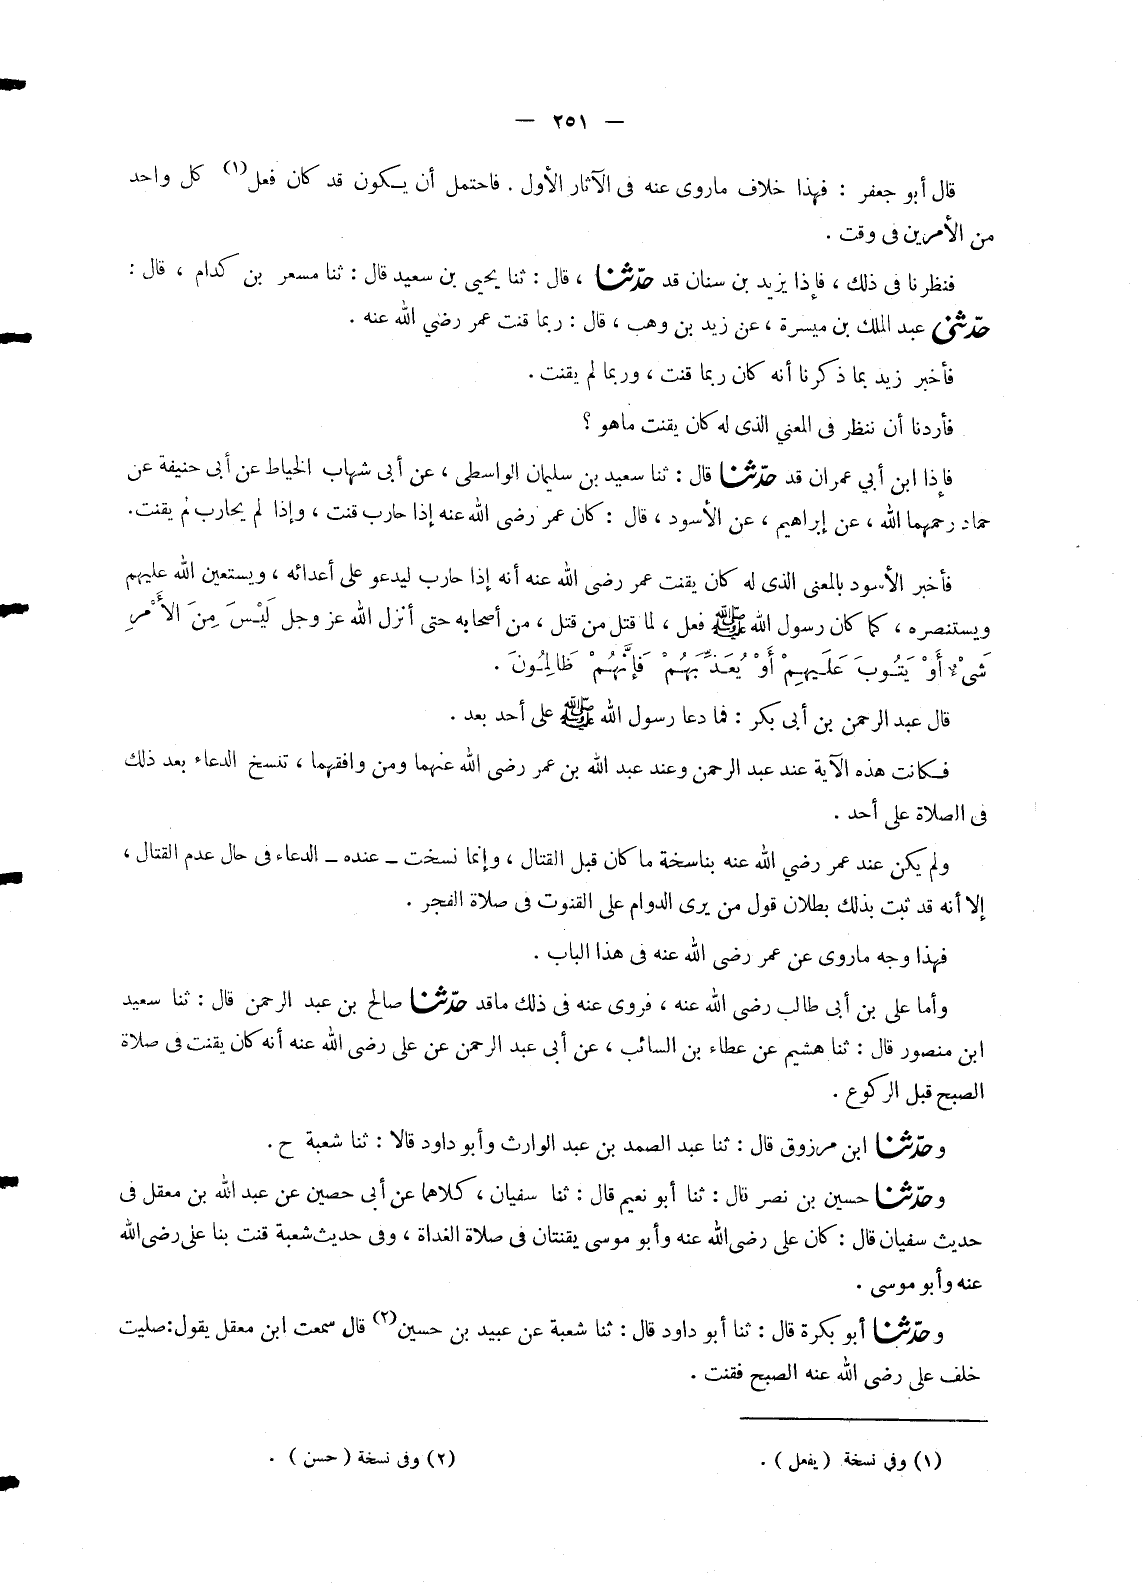 — ٢٥١ —
قال أبو جعفر : فهذا خلاف ماروى عنه فى الآثار الأول . فاحتمل أن يكون قد كان فعل(١) كل واحد
من الأمرين فى وقت .
فنظرنا فى ذلك ، فإذا يزيد بن سنان قد حدّثنا ، قال : ثنا يحيى بن سعيد قال : ثنا مسعر بن كدام ، قال :
حدّثنى عبد الملك بن ميسرة ، عن زيد بن وهب ، قال : ربما قنت عمر رضي الله عنه .
فأخبر زيد بما ذكرنا أنه كان ربما قنت ، وربما لم يقنت .
فأردنا أن ننظر فى المعني الذى له كان يقنت ماهو ؟
فإذا ابن أبي عمران قد حدّثنا قال : ثنا سعيد بن سليمان الواسطى ، عن أبى شهاب الخياط عن أبى حنيفة عن
حماد رحمهما الله ، عن إبراهيم ، عن الأسود ، قال : كان عمر رضى الله عنه إذا حارب قنت ، وإذا لم يحارب لم يقنت.
فأخبر الأسود بالمعنى الذى له كان يقنت عمر رضى الله عنه أنه إذا حارب ليدعو على أعدائه ، ويستعين الله عليهم
ويستنصره ، كما كان رسول الله ﷺ فعل ، لما قتل من قتل ، من أصحابه حتى أنزل الله عز وجل لَيْسَ مِنَ الأَمْرِ
شَىْءٌ أَوْ يَتُوبَ عَلَيهِمْ أَوْ يُعَذِّبَهُمْ فَإِنَّهُمْ ظَالِمُونَ .
قال عبد الرحمن بن أبى بكر : فما دعا رسول الله ﷺ على أحد بعد .
فكانت هذه الآية عند عبد الرحمن وعند عبد الله بن عمر رضى الله عنهما ومن وافقهما ، تنسخ الدعاء بعد ذلك
فى الصلاة على أحد .
ولم يكن عند عمر رضي الله عنه بناسخة ما كان قبل القتال ، وإنما نسخت ـ عنده ـ الدعاء فى حال عدم القتال ،
إلا أنه قد ثبت بذلك بطلان قول من يرى الدوام على القنوت فى صلاة الفجر .
فهذا وجه ماروى عن عمر رضى الله عنه فى هذا الباب .
وأما على بن أبى طالب رضى الله عنه ، فروى عنه فى ذلك ماقد حدّثنا صالح بن عبد الرحمن قال : ثنا سعيد
ابن منصور قال : ثنا هشيم عن عطاء بن السائب ، عن أبى عبد الرحمن عن على رضى الله عنه أنه كان يقنت فى صلاة
الصبح قبل الركوع .
وحدّثنا ابن مرزوق قال : ثنا عبد الصمد بن عبد الوارث وأبو داود قالا : ثنا شعبة ح .
وحدّثنا حسين بن نصر قال : ثنا أبو نعيم قال : ثنا سفيان ، كلاهما عن أبى حصين عن عبد الله بن معقل فى
حديث سفيان قال : كان على رضى الله عنه وأبو موسى يقنتان فى صلاة الغداة ، وفى حديث شعبة قنت بنا على رضى الله
عنه وأبو موسى .
وحدّثنا أبو بكرة قال : ثنا أبو داود قال : ثنا شعبة عن عبيد بن حسين(٢) قال سمعت ابن معقل يقول:صليت
خلف على رضى الله عنه الصبح فقنت .
(١) وفي نسخة ( يفعل ) .	(٢) وفى نسخة ( حسن ) .